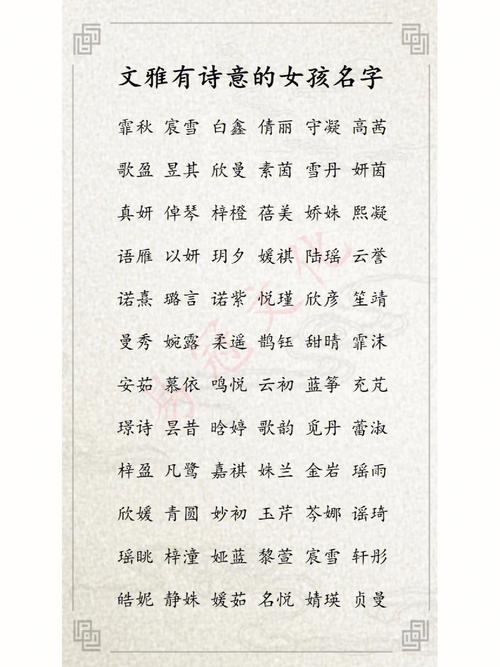 文雅有诗意的女孩名字
霏秋 宸雪 白鑫 倩丽 守凝 高茜
歌盈 昱其 欣曼 素茵 雪丹 妍茵
真妍 倬琴 梓橙 蓓美 娇姝 熙凝
语雁 以妍 玥夕 媛祺 陆瑶 云誉
诺熹 璐言 诺紫 悦瑾 欣彦 笙靖
曼秀 婉露 柔遥 鹊钰 甜晴 霏沫
安茹 慕依 鸣悦 云初 蓝筝 充芃
璟诗 昙昔 晗婷 歌韵 觅丹 蕾淑
梓盈 凡鹭 嘉祺 姝兰 金岩 瑶雨
欣媛 青圆 妙初 玉芹 芩娜 谣琦
瑶眺 梓潼 娅蓝 黎萱 宸雪 轩彤
皓妮 静姝 媛茹 名悦 婧瑛 贞曼